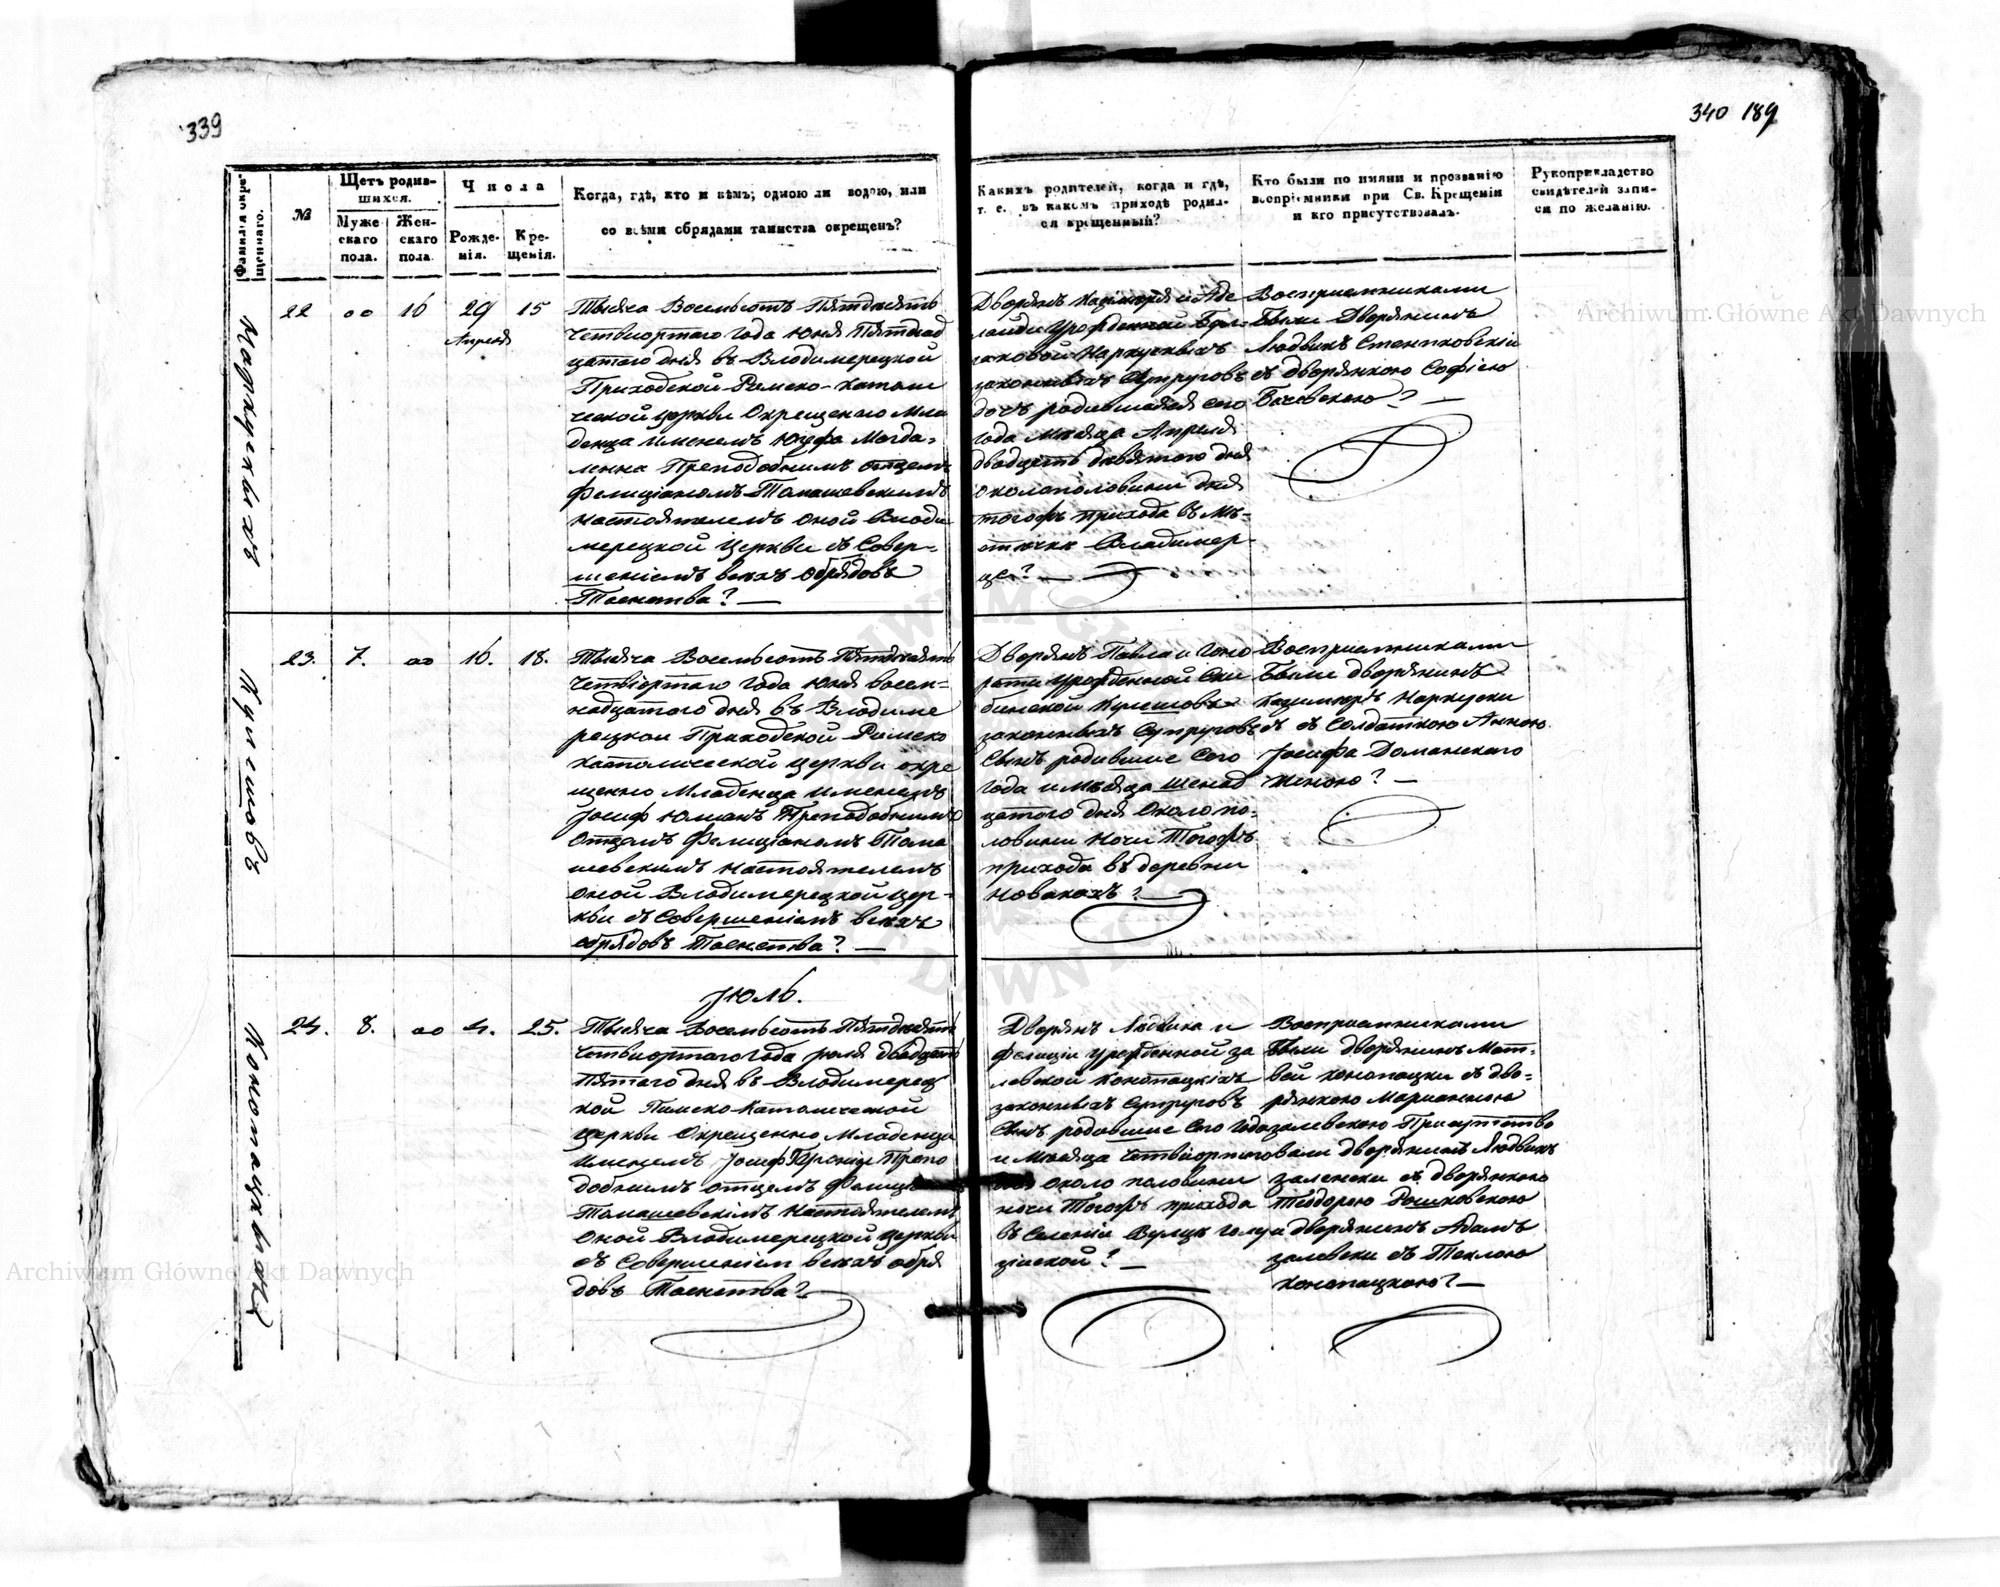 339
340 189
Фамилія окре-
щеннаго.
№
Щетъ родив-
шихся.
Муже-
скаго
пола.
Жен-
скаго
пола.
Числа
Рожде-
нія.
Кре-
щенія.
Когда, гдѣ, кто и кѣмъ; одною ли водою, или
со всѣми обрядами таинства окрещенъ?
Какихъ родителей, когда и гдѣ,
т. е. въ какомъ приходѣ родил-
ся крещенный?
Кто были по имяни и прозванію
воспріемники при Св. Крещеніи
и кто присутствовалъ.
Рукоприкладство
свидѣтелей запи-
си по желанію.
Наркускихъ
22 оо 16 29 15
Апреля
Тысяча Восемьсотъ Пятдесятъ
Четвиортаго года Юня Пятнад
цатого дня въ Влодимерецкой
Приходской Римско-Катали
ческой церкви Окрещенно Мла
денца именемъ Юзефа Магда-
ленна Преподобнимъ Отцемъ
Фелиціаномъ Томашевскимъ
Настоятелемъ Оной Влоди
мерецкой Церкви съ Совер-
шеніемъ всехъ Обрядовъ
Таенства? —
Дворянъ Казіміря и Аде
лаиди Урожденной
Наркускихъ
законныхъ Супруговъ
дочъ родившаяся сего
года Месяца Апреля
двадцать девятого дня
около половини дня
тогожъ прихода въ Мѣ-
стечке Владимер-
це? —
Восприемниками
Были Дворянинъ
Людвикъ Стемпковскій
съ дворянкою Софіею
? —
Кулешовъ
23. 7. оо 16. 18.
Тысяча Восемьсотъ Пятдесятъ
Четвіортаго года Юня восем-
надцатого дня въ Влодиме
рецкои Приходской Римско
Католической Церкви окре
щенно Младенца именемъ
Јосиф Юлианъ Преподобнимъ
Отцемъ Фелиціаномъ Тома
шевскимъ Настоятелемъ
Оной Влодимерецкой Цер-
кви съ Совершеніемъ всехъ
обрядовъ Таенства? —
Дворянъ Павла и Гоно
рати Урожденной Ски
бинской Кулешовъ
законныхъ Супруговъ
Сынъ родившіе Сего
года и Месяца Шеснад
цатого дня Около по-
ловини Ночи Тогожъ
прихода въ деревни
Новакахъ? —
Восприемниками
Были дворянинъ
Казимиръ Наркуски
съ Солдаткою Анною
Јосифа Доманского
Женою? —
Конопацкихъ
Јюль.
24. 8. оо 4. 25.
Тысяча Восемьсотъ Пятдесятъ
Четвиортаго года Јюля двадцать
Пятаго дня въ Влодимерец
кой Римско Католической
Церкви Окрещенно Младенца
Именемъ Јосиф Препо
добнимъ Отцемъ
Томашевскімъ Настоятелемъ
Оной Влодимерецкой Церкви
съ Совершеніем всехъ обря
довъ Таенства? —
Дворянъ Людвика и
Фелиціи Урожденной За
левской Конопацкіхъ
законныхъ Супруговъ
Сынъ родившіе Сего года
и Месяца Четвиортого
около половини
ночи Тогожъ прихода
въ Селеніи
? —
Восприемниками
Были дворянинъ Мат-
вей Конопацки съ дво-
рянкою Марианною
Залевскою Присутство
вали дворянинъ Людвикъ
Залевски съ дворянкою
Теодорою
и дворянинъ Адамъ
Залевски съ Теклою
Конопацкою? —
Archiwum Główne Akt Dawnych
Archiwum Główne Akt Dawnych